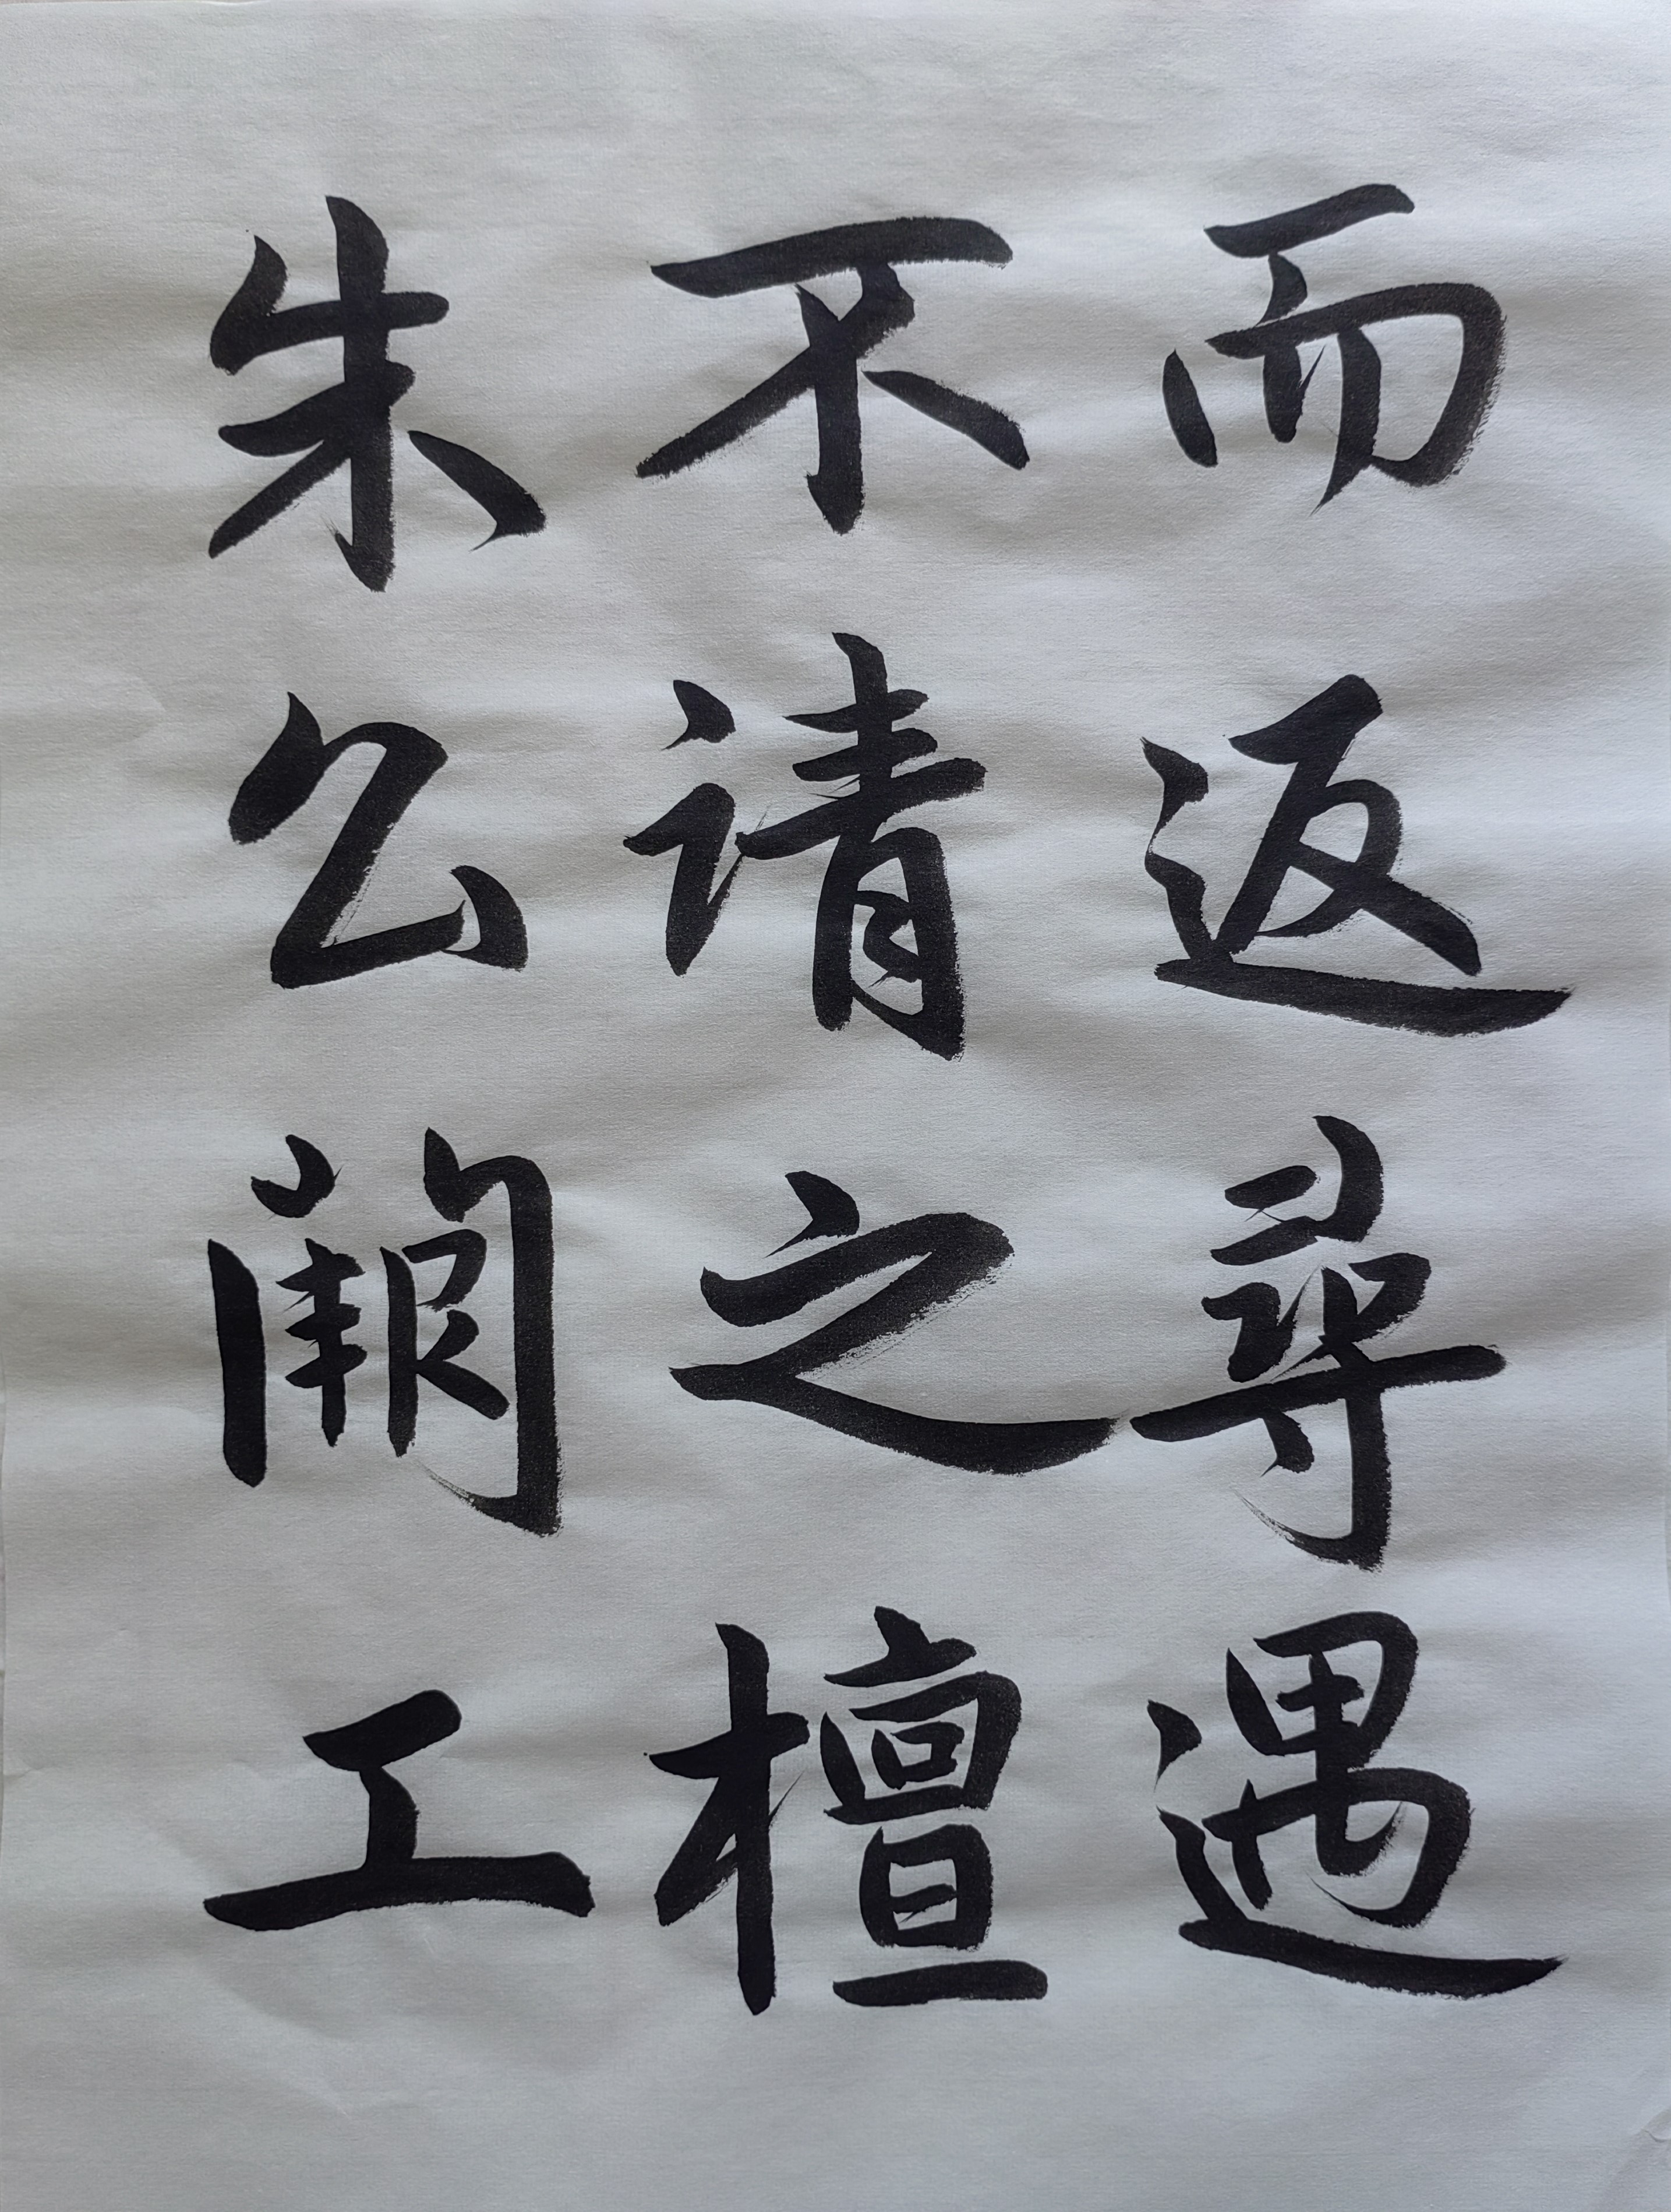 而返尋遇
不请之檀
朱公工